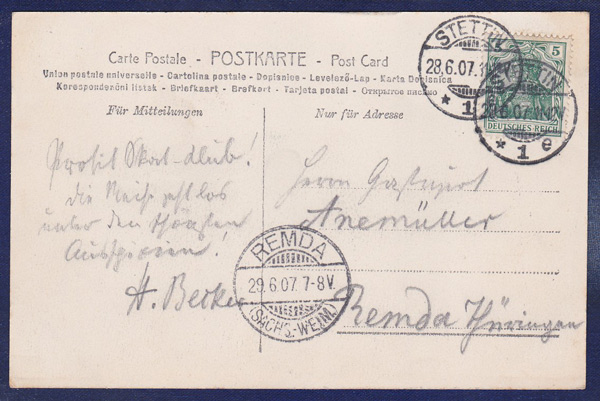 Carte Postale - POSTKARTE - Post Card
Union postale universelle - Cartolina postale - Dopisnice - Levelező-Lap - Karta Dopisnica
Korespondenční lístek - Briefkaart - Brefkort - Tarjeta postal - Открытое письмо
Für Mitteilungen
Nur für Adresse
STETTIN
28.6.07.
* 1 e
5
DEUTSCHES REICH
Prosit Skat-Klub!
die
unter den
H. Becker
Herrn Gastwirt
Anemüller
Remda Thüringen
REMDA
29.6.07. 7-8V.
(SACHS.-WEIM.)